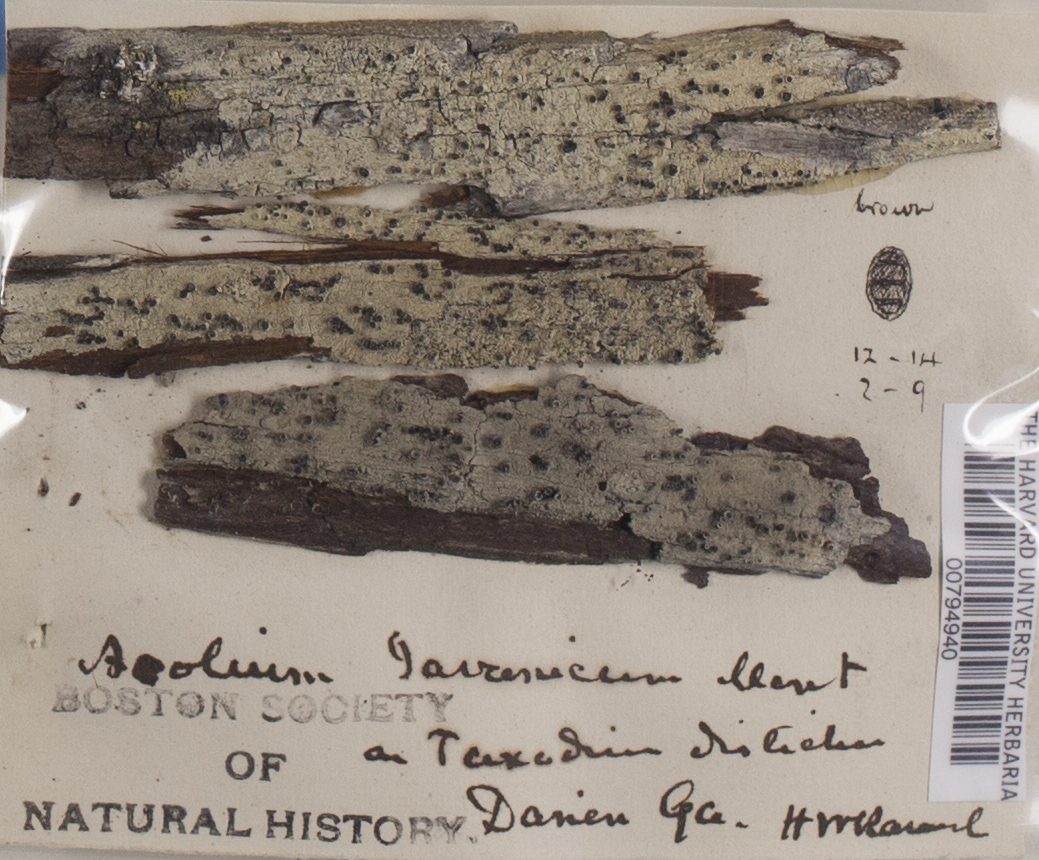 brown
12 - 14
2 - 9
THE HARVARD UNIVERSITY HERBARIA
00794940
Acolium Javanicum Mont
BOSTON SOCIETY
on Taxodium distichum
OF
Darien Ga. H W Ravenel
NATURAL HISTORY.